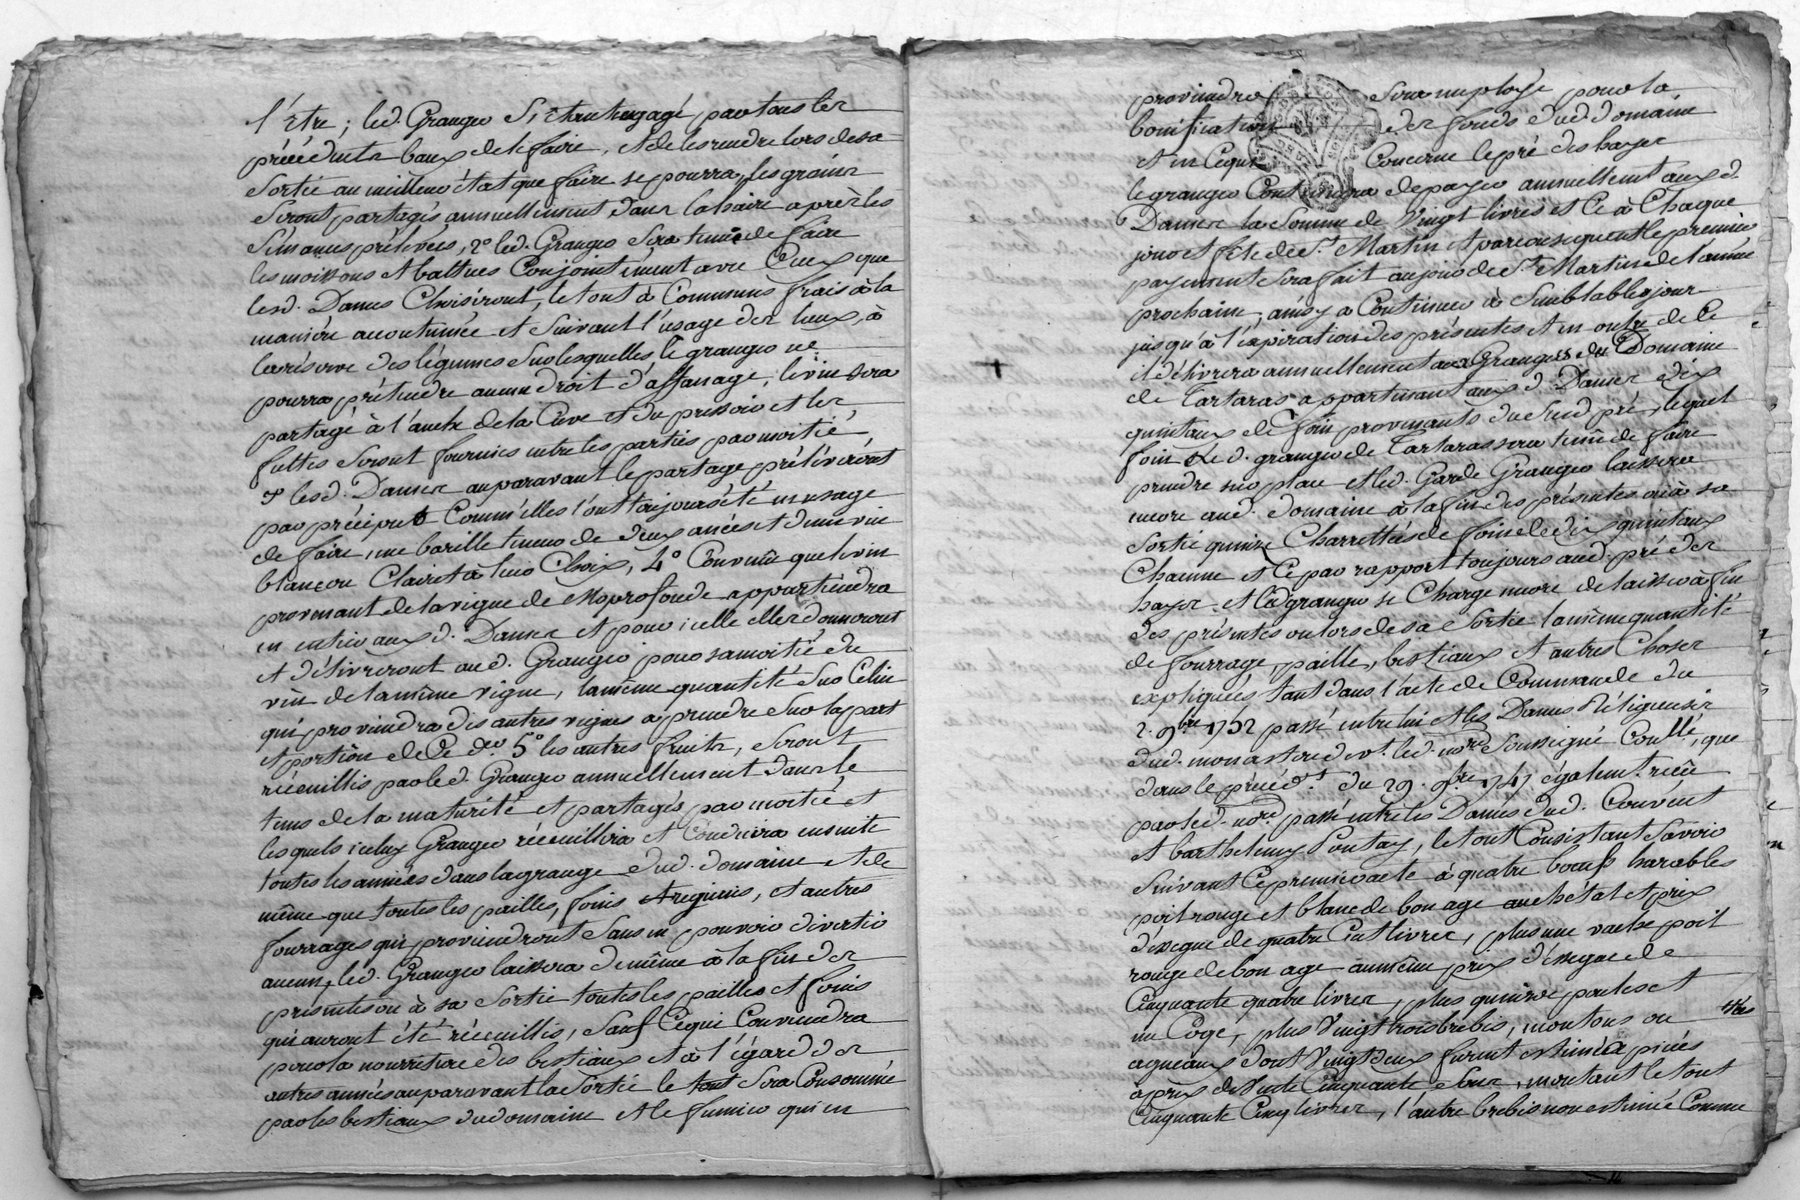 l'Etre; led Granger s'i étant engagé par tous les
précédents baux de le faire, et de les rendre lors de sa
Sortie au meilleur état que faire se pourra, les grains
Seront partagés annuellement dans la haire après les
Semances prélevées, 2° led. Granger Sera tenu de faire
les moissons et battues Conjointement avec Ceux que
lesd. Dames Choisiront, le tout à Communs frais à la
manière accoutumée et Suivant l'usage des lieux, à
la réserve des légumes Sur lesquelles le granger ne
pourra prétendre aucun droit d'affanage, le vin sera
partagé à l'anche de la Cuve et du pressoir et les
futtes Seront fournies entre les parties par moitié,
et lesd. Dames auparavant le partage préléveront
par préciput Comm'elles l'ont toujours été en usage
de faire, une barille teneur de deux anées et demi vin
blanc ou Clairet à leur Choix, 4° Convenu que le vin
provenant de la vigne de Moprofonde appartiendra
en entier aux d. Dames et pour icelle elles donneront
et délivreront aud. Granger pour sa moitié du
vin de la même vigne, la même quantité Sur Celui
qui proviendra des autres vignes a prendre Sur la part
et portion de Ce der 5° les autres fruits, Seront
récueillis par led. Granger annuellement dans le
tems de la maturité et partagés par moitié et
lesquels icelux Granger récueillira et Conduira ensuite
toutes les années dans la grange dud. domaine et de
même que toutes les pailles, foins et reguins, et autres
fourrages qui proviendront Sans en pouvoir divertir
aucun, led. Granger laissera de même à la fin des
présentes ou à sa Sortie toutes les pailles et foins
qui auront été récueillis, Sauf Cequi Conviendra
pour la nourriture des bestiaux et à l'égard des
autres années auparavant la Sortie le tout Sera Consommé
par les bestiaux du domaine et le fumier qui en
proviendra Sera employé pour la
bonification des fonds dud domaine
et en Cequi Concerne le pré des hayes
le granger Continuera de payer annuellement aux d.
Dames la Somme de Vingt livres et Ce à Chaque
jour et fête de St Martin et par consequent le premier
payement Sera fait au jour de St Martin de l'année
prochaine, ainsy a Continuer à Semblable jour
jusqu'à l'éxpiration des présentes et en outre de Ce
il délivrera annuellement aux Granger du Domaine
de Tartaras appartenant aux d. Dames dix
quintaux de foin provenants du Susd. pré, lequel
foin Led. granger de Tartaras sera tenu de faire
prendre sur place et led. Garde Granger laissera
encore aud. domaine à la fin des présentes ou à sa
Sortie quinze Charrettées de foin de dix quintaux
Chacune et Ce par rapport toujours aud. pré des
hayes, et led granger se Charge encore de laisser à fin
des présentes ou lors de sa Sortie la même quantité
de fourrage, paille, bestiaux et autres Choses
expliquées tant dans l'acte de Commande du
2. 9bre 1752 passé entre lui et les Dames Réligieuses
dud. monastère dvt. led. nore Soussigné Coullé, que
dans le précédt. du 29. 9bre 1747 égalemt. réçu
par led. nore. passé entre les Dames dud. Couvent
et barthelemy Pontay, le tout Consistant Savoir
Suivant Ce premier acte à quatre boeufs harables
poil rouge et blanc de bon age au chétal et prix
d'éxegue de quatre Cent livres, plus une vache poil
rouge de bon age au même prix d'éxegue de
Cinquante quatre livres, plus quinze poules et
un Coqe, plus Vingt trois brebis, moutons ou
agneaux dont Vingt deux furent estimés piéces
a prix de Vente Cinquante Sous, montant le tout
Cinquante Cinq livres, l'autre brebis non estimée Comme